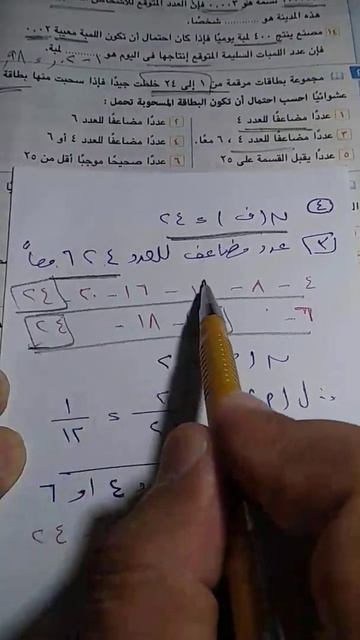 هذه المدينة هو ........ شخصًا.
١٤ مصنع ينتج ٤٠٠ لمبة يوميًا فإذا كان احتمال أن تكون اللمبة معيبة ٠٫٠٢
فإن عدد اللمبات السليمة المتوقع إنتاجها في اليوم هو ........ لمبة.
مجموعة بطاقات مرقمة من ١ إلى ٢٤ خلطت جيدًا فإذا سحبت منها بطاقة
عشوائيًا احسب احتمال أن تكون البطاقة المسحوبة تحمل :
١ عددًا مضاعفًا للعدد ٤
٢ عددًا مضاعفًا للعدد ٦
٣ عددًا مضاعفًا للعدد ٤ ، ٦ معًا.
٤ عددًا مضاعفًا للعدد ٤ أو ٦
٥ عددًا يقبل القسمة على ٢٥
٦ عددًا صحيحًا موجبًا أقل من ٢٥
٤ ن (ف) = ٢٤
٣ عدد مضاعف للعدد ٤ ٦ معاً
٤ - ٨ - - ١٦ - ٢٠ - ٢٤
٦ - - ١٨ - ٢٤
= ١/١٢
٤ او ٦
٢٤